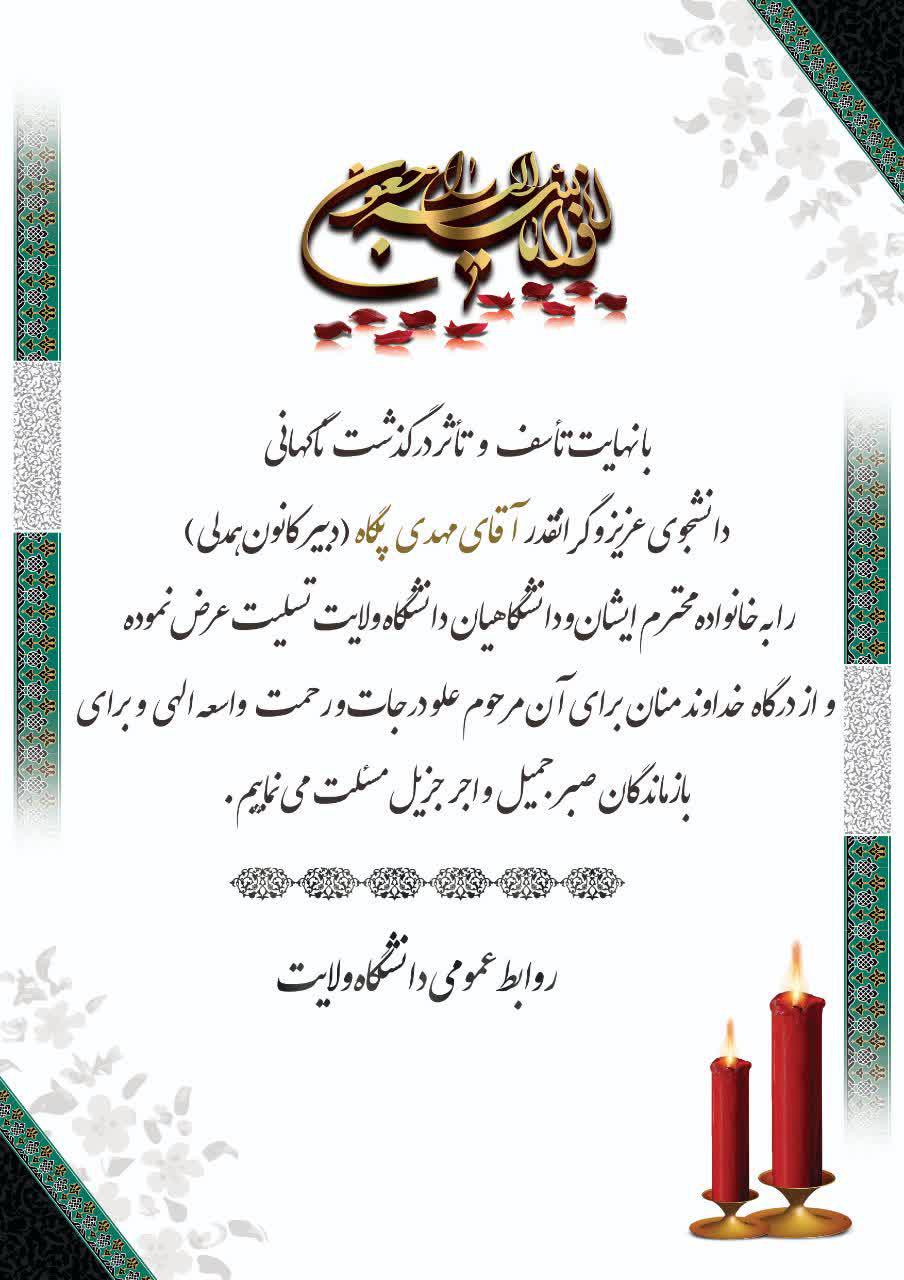 انا لله و انا الیه راجعون
با نهایت تأسف و تأثر درگذشت ناگهانی
دانشجوی عزیز و گرانقدر آقای مهدی پگاه (دبیر کانون همدلی)
را به خانواده محترم ایشان و دانشگاهیان دانشگاه ولایت تسلیت عرض نموده
و از درگاه خداوند منان برای آن مرحوم علو درجات و رحمت واسعه الهی و برای
بازماندگان صبر جمیل و اجر جزیل مسئلت می نماییم .
روابط عمومی دانشگاه ولایت